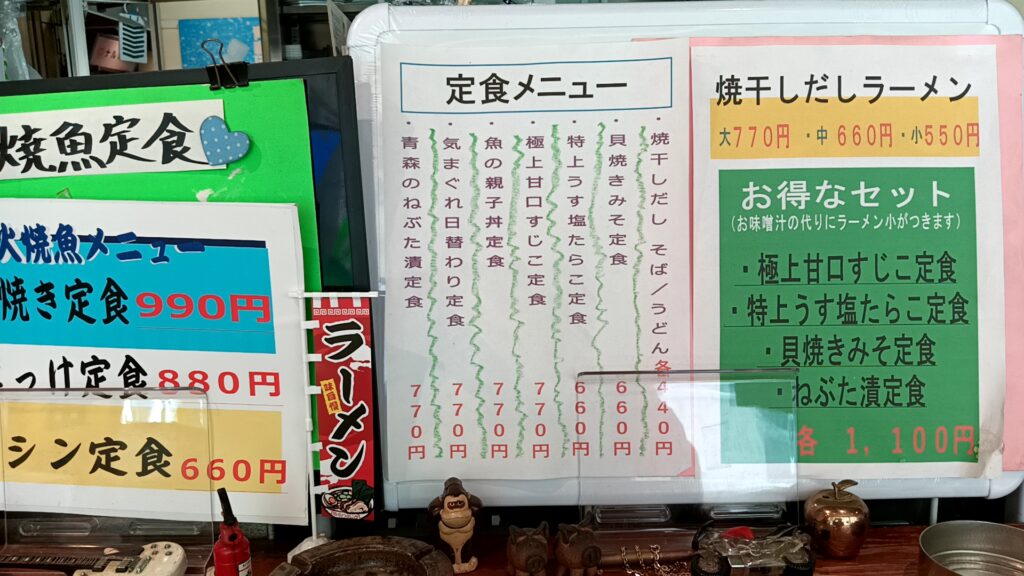 焼魚定食
火焼魚メニュー
焼き定食 990円
っけ定食 880円
シン定食 660円
ラーメン
味自慢
定食メニュー
・焼干しだし そば／うどん 各440円
・貝焼きみそ定食 660円
・特上うす塩たらこ定食 660円
・極上甘口すじこ定食 770円
・魚の親子丼定食 770円
・気まぐれ日替わり定食 770円
・青森のねぶた漬定食 770円
焼干しだしラーメン
大770円・中660円・小550円
お得なセット
（お味噌汁の代りにラーメン小がつきます）
・極上甘口すじこ定食
・特上うす塩たらこ定食
・貝焼きみそ定食
・ねぶた漬定食
各 1,100円